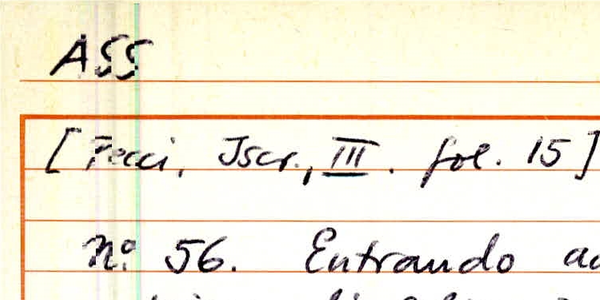 ASS
[Pecci, Iscr., III. fol. 15]
nº 56. Entrando